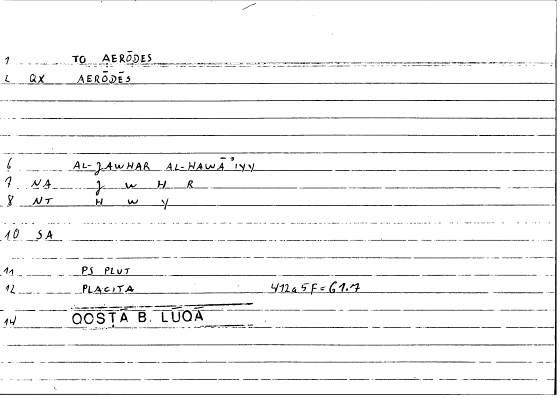 1 TO AERŌDES
2 QX AERŌDĒS
6 AL-JAWHAR AL-HAWĀʾIYY
7 NA J W H R
8 NT H W Y
10 SA
11 PS PLUT
12 PLACITA 412a5F=61.7
14 QOSṬĀ B. LŪQĀ